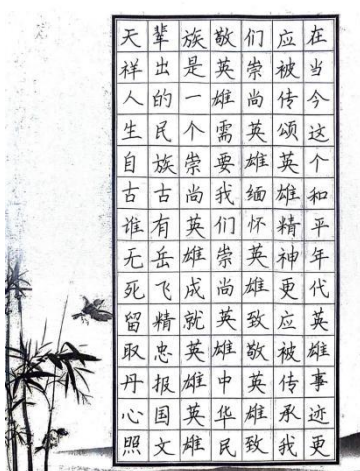 在当今这个和平年代英雄事迹更
应被传颂英雄精神更应被传承我
们崇尚英雄缅怀英雄致敬英雄致
敬英雄需要我们崇尚英雄中华民
族是一个崇尚英雄成就英雄英雄
辈出的民族古有岳飞精忠报国文
天祥人生自古谁无死留取丹心照